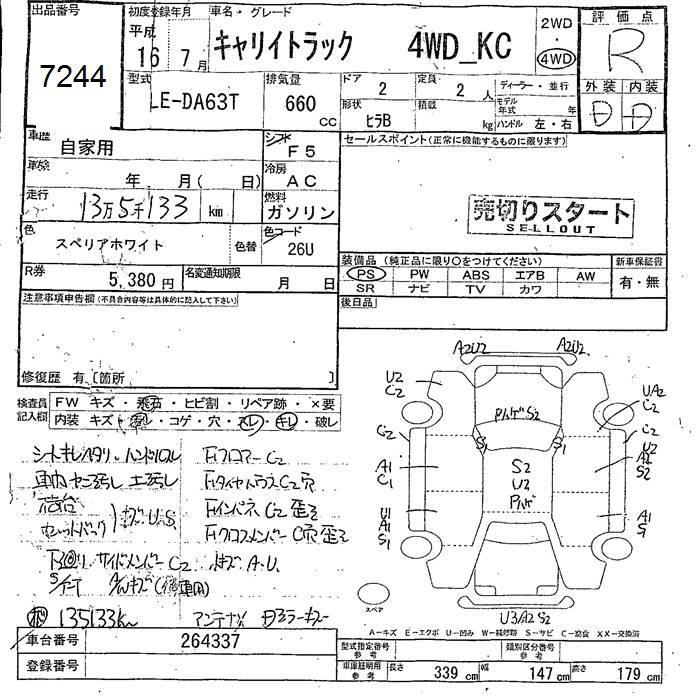 出品番号
7244
初度登録年月
平成
16 7月
車名・グレード
キャリイトラック 4WD_KC
2WD
4WD
評価点
R
外装 内装
D D
型式
LE-DA63T
排気量
660 cc
ドア
2
定員
2 人
形状
ヒラB
積載
kg
ディーラー・並行
モデル年式 年
ハンドル 左・右
車歴
自家用
シフト
F5
車検
年 月( 日)
冷房
AC
走行
13万5千133 km
燃料
ガソリン
色
スペリアホワイト
色替
色コード
26U
R券
5,380円
名変通知期限
月 日
セールスポイント(正常に機能するものに限ります)
売切りスタート
SELLOUT
装備品(純正品に限り○をつけてください)
PS PW ABS エアB AW
SR ナビ TV カワ
新車保証書
有・無
後日品
注意事項申告欄(不具合内容等は具体的に記入して下さい)
修復歴 有〔箇所 〕
検査員記入欄
FW キズ・飛石・ヒビ割・リペア跡・×要
内装 キズ・汚レ・コゲ・穴・スレ・キレ・破レ
シートキレ
車内ヤニ汚レ 土汚レ
荷台
キズU.S
サイドメンバーC2
135133km
アンテナ
Fフロアー C2
Fタイヤハウス C2穴
Fインパネ C2 歪ミ
Fクロスメンバー C穴 歪ミ
キズA.U
A2U2 A2U2
U2 C2
UA2 C2
S2
S1 S1
C2
C2 U2
A1 C1
S2
U2
A2 S2
U1 A1 S1
A1 S1
スペア
U3/A2 S2
A-キズ E-エクボ U-凹み W-補修跡 S-サビ C-腐食 XX-交換済
車台番号
264337
登録番号
型式指定番号 参考
類別区分番号 参考
車庫証明用 参考
長さ 339 cm 幅 147 cm 高さ 179 cm